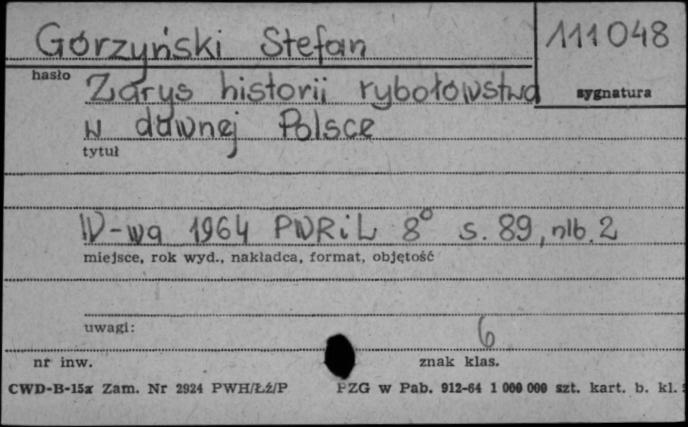 Górzyński Stefan
111048
hasło
Zarys historii rybołówstwa
sygnatura
w dawnej Polsce
tytuł
W-wa 1964 PWRiL 8° s. 89, nlb. 2
miejsce, rok wyd., nakładca, format, objętość
uwagi:
6
nr inw.
znak klas.
CWD-B-15x Zam. Nr 2924 PWH/Łź/P PZG w Pab. 912-64 1 000 000 szt. kart. b. kl.